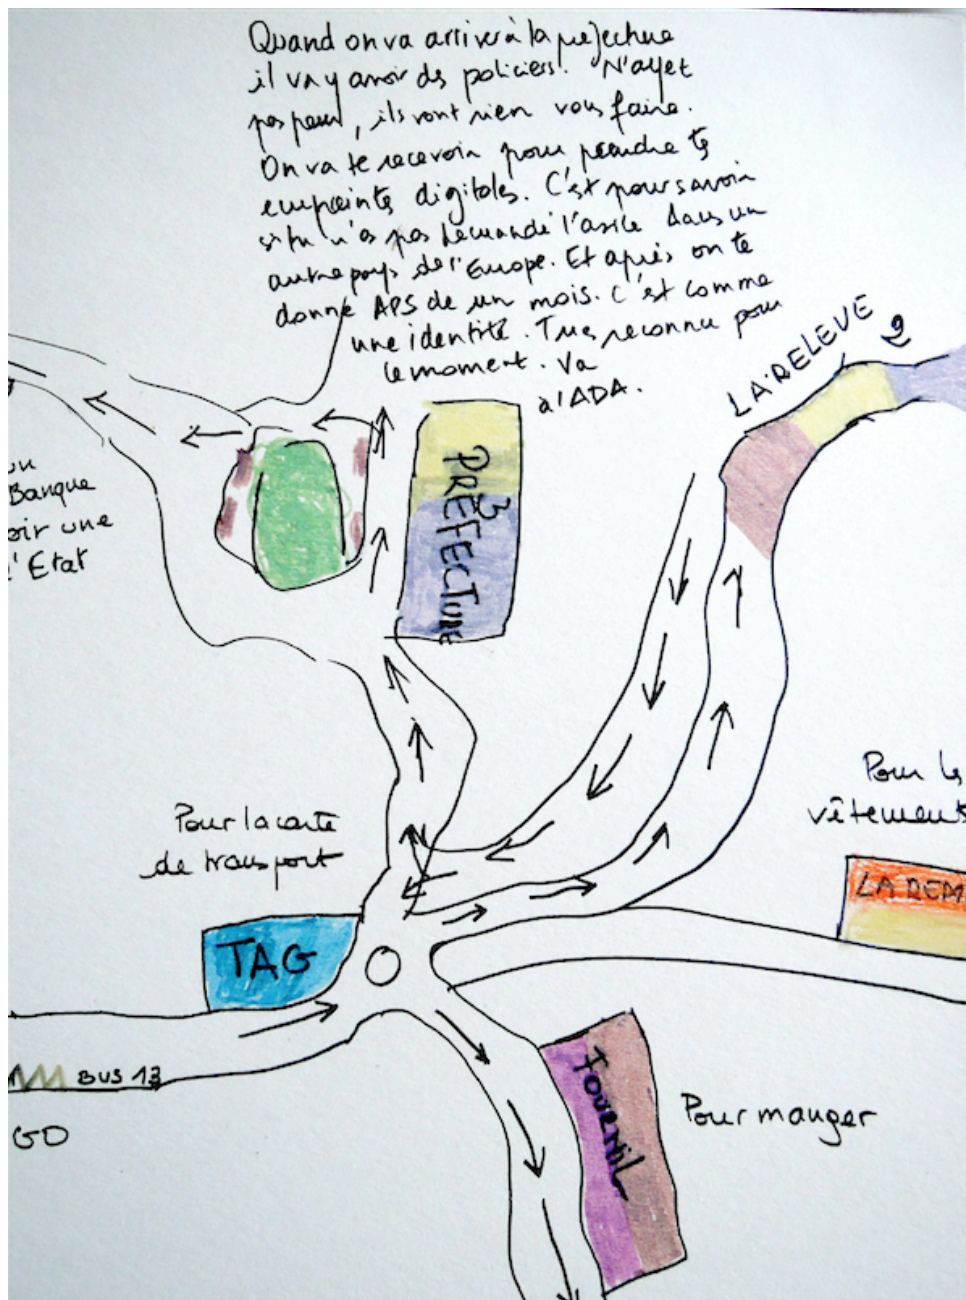 Quand on va arriver à la préfecture
il va y avoir des policiers. N'ayet
pas peur, ils vont rien vous faire.
On va te recevoir pour prendre tes
empreintes digitales. C'est pour savoir
si tu n'as pas demandé l'asile dans un
autre pays de l'Europe. Et après on te
donne APS de un mois. C'est comme
une identité. Tu es reconnu pour
le moment. Va
à l'ADA.
LA RELEVE
2
PREFECTURE
3
un
Banque
oir une
l'Etat
Pour les
vêtements
LA REM
Pour la carte
de transport
TAG
BUS 13
GD
FOURNIL
Pour manger